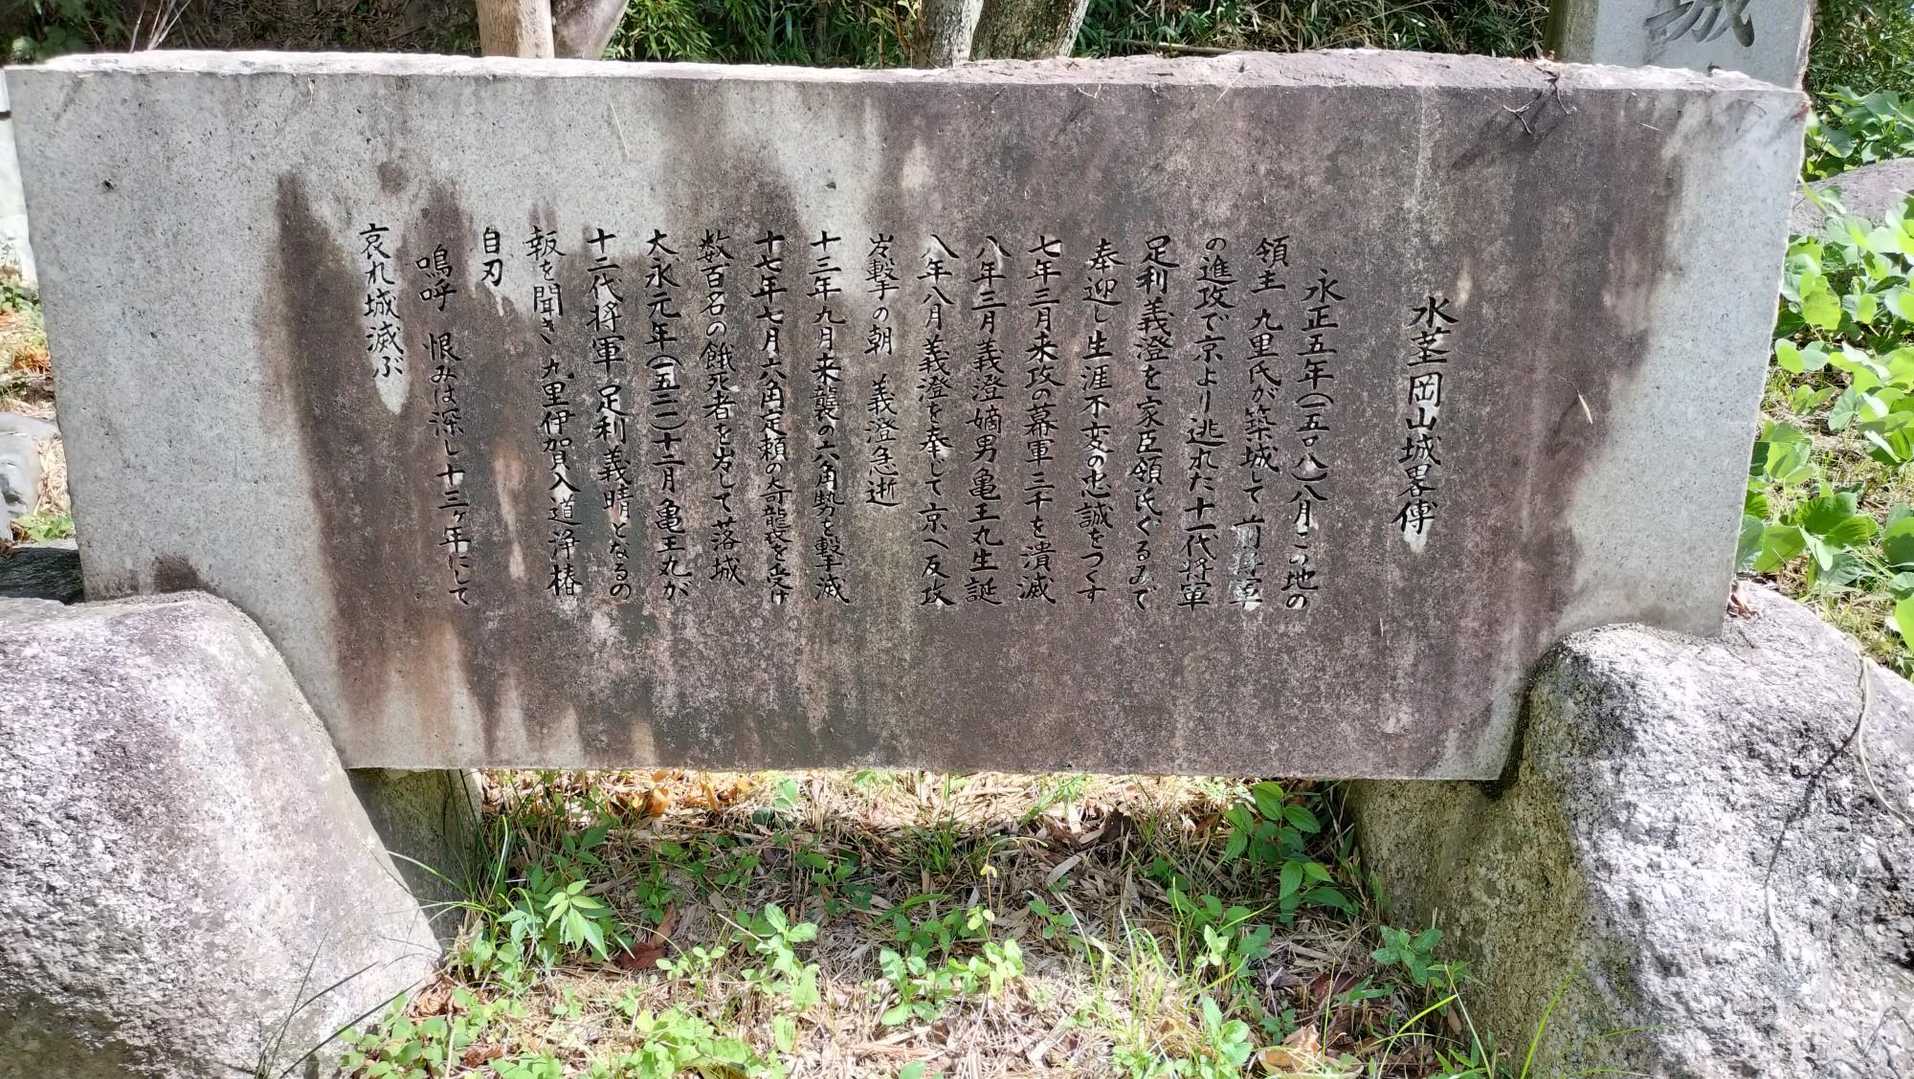 水茎岡山城畧傳
永正五年(一五〇八)八月この地の
領主 九里氏が築城して 前将軍
の進攻で京より逃れた十一代将軍
足利義澄を家臣領氏ぐるみで
奉迎し生涯不変の忠誠をつくす
七年三月来攻の幕軍三千を潰滅
八年三月義澄嫡男亀王丸生誕
八年八月義澄を奉じて京へ反攻
出撃の朝 義澄急逝
十三年九月来襲の六角勢を撃滅
十七年七月六角定頼の奇襲を受け
数百名の餓死者を出して落城
大永元年(一五二一)十二月亀王丸が
十二代将軍 足利義晴となるの
報を聞き 九里伊賀入道浄椿
自刃
嗚呼 恨みは深し十三ヶ年にして
哀れ城滅ぶ
城